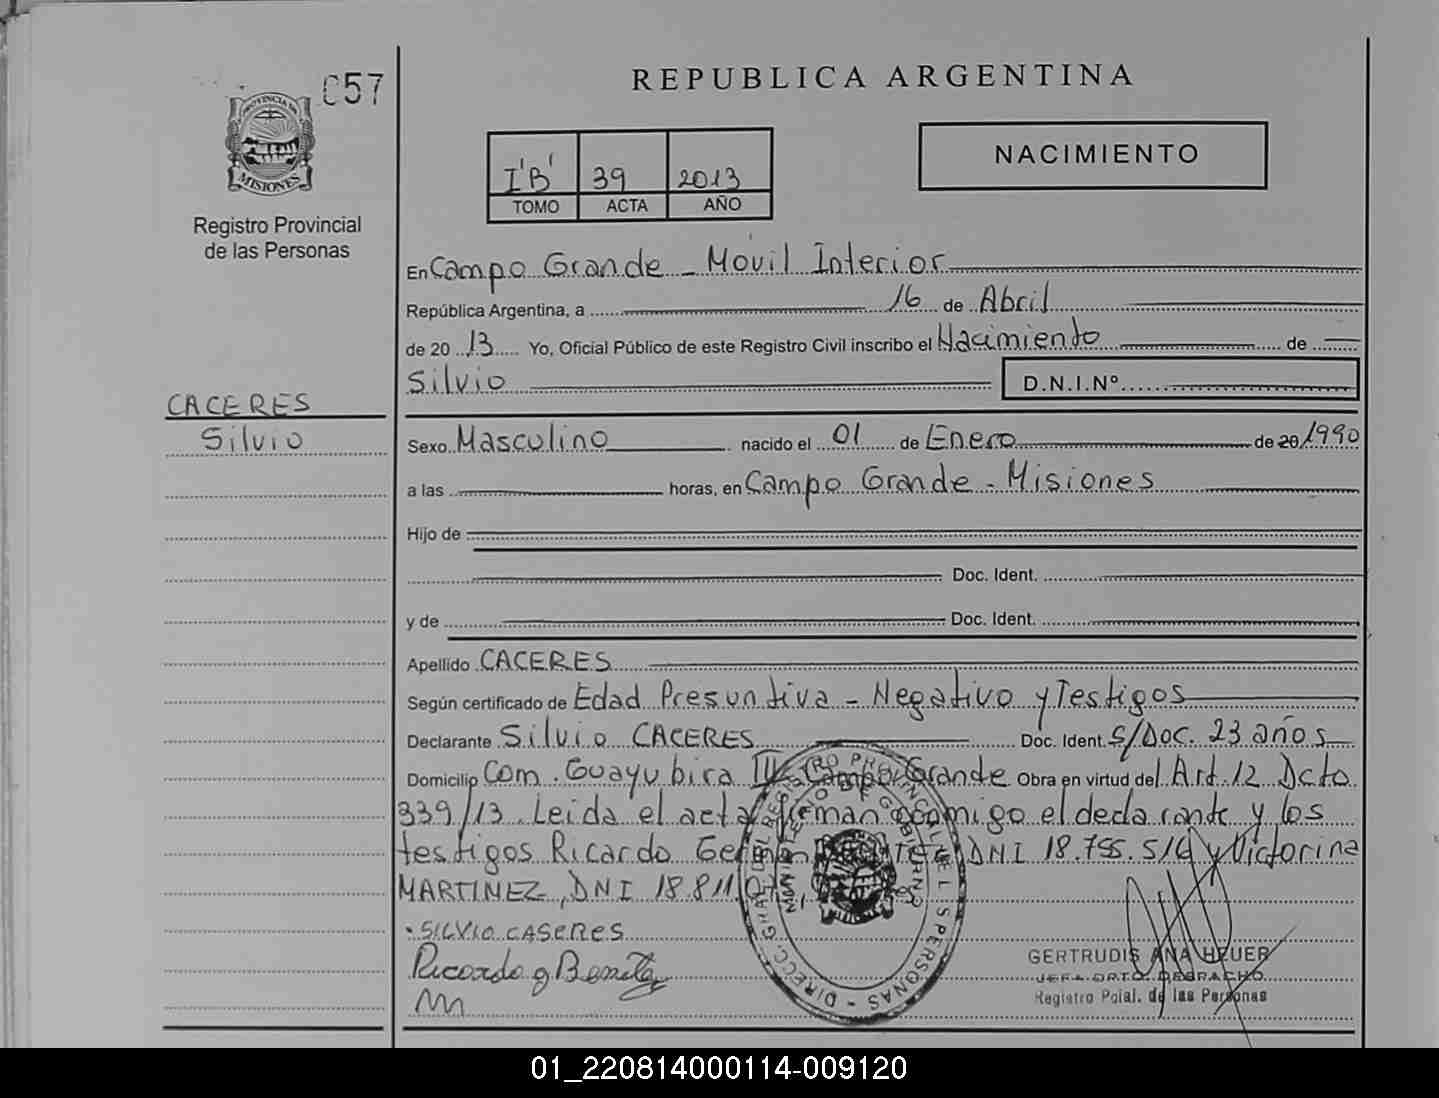 057
PROVINCIA DE
MISIONES
Registro Provincial
de las Personas
CACERES
Silvio
REPUBLICA ARGENTINA
I 'B' 39 2013
TOMO ACTA AÑO
NACIMIENTO
En Campo Grande - Móvil Interior
República Argentina, a 16 de Abril
de 2013 Yo, Oficial Público de este Registro Civil inscribo el Nacimiento de
Silvio D.N.I.Nº
Sexo Masculino nacido el 01 de Enero de 20 1990
a las horas, en Campo Grande - Misiones
Hijo de
Doc. Ident.
y de Doc. Ident.
Apellido CACERES
Según certificado de Edad Presuntiva - Negativo y Testigos
Declarante Silvio CACERES Doc. Ident. S/Doc. 23 años
Domicilio Com. Guayubira Campo Grande Obra en virtud del Art. 12 Dcto
339/13. Leida el acta firman conmigo el declarante y los
testigos Ricardo German DNI 18.755.516 y Victorina
MARTINEZ, DNI 18.811.
SILVIO CASERES
Ricardo g Benite
GERTRUDIS ANA HEUER
JEFA DPTO. DESPACHO
Registro Pcial. de las Personas
DIRECC. GRAL. DEL REGISTRO PROVINCIAL DE LAS PERSONAS
MINISTERIO DE GOBIERNO
01_220814000114-009120